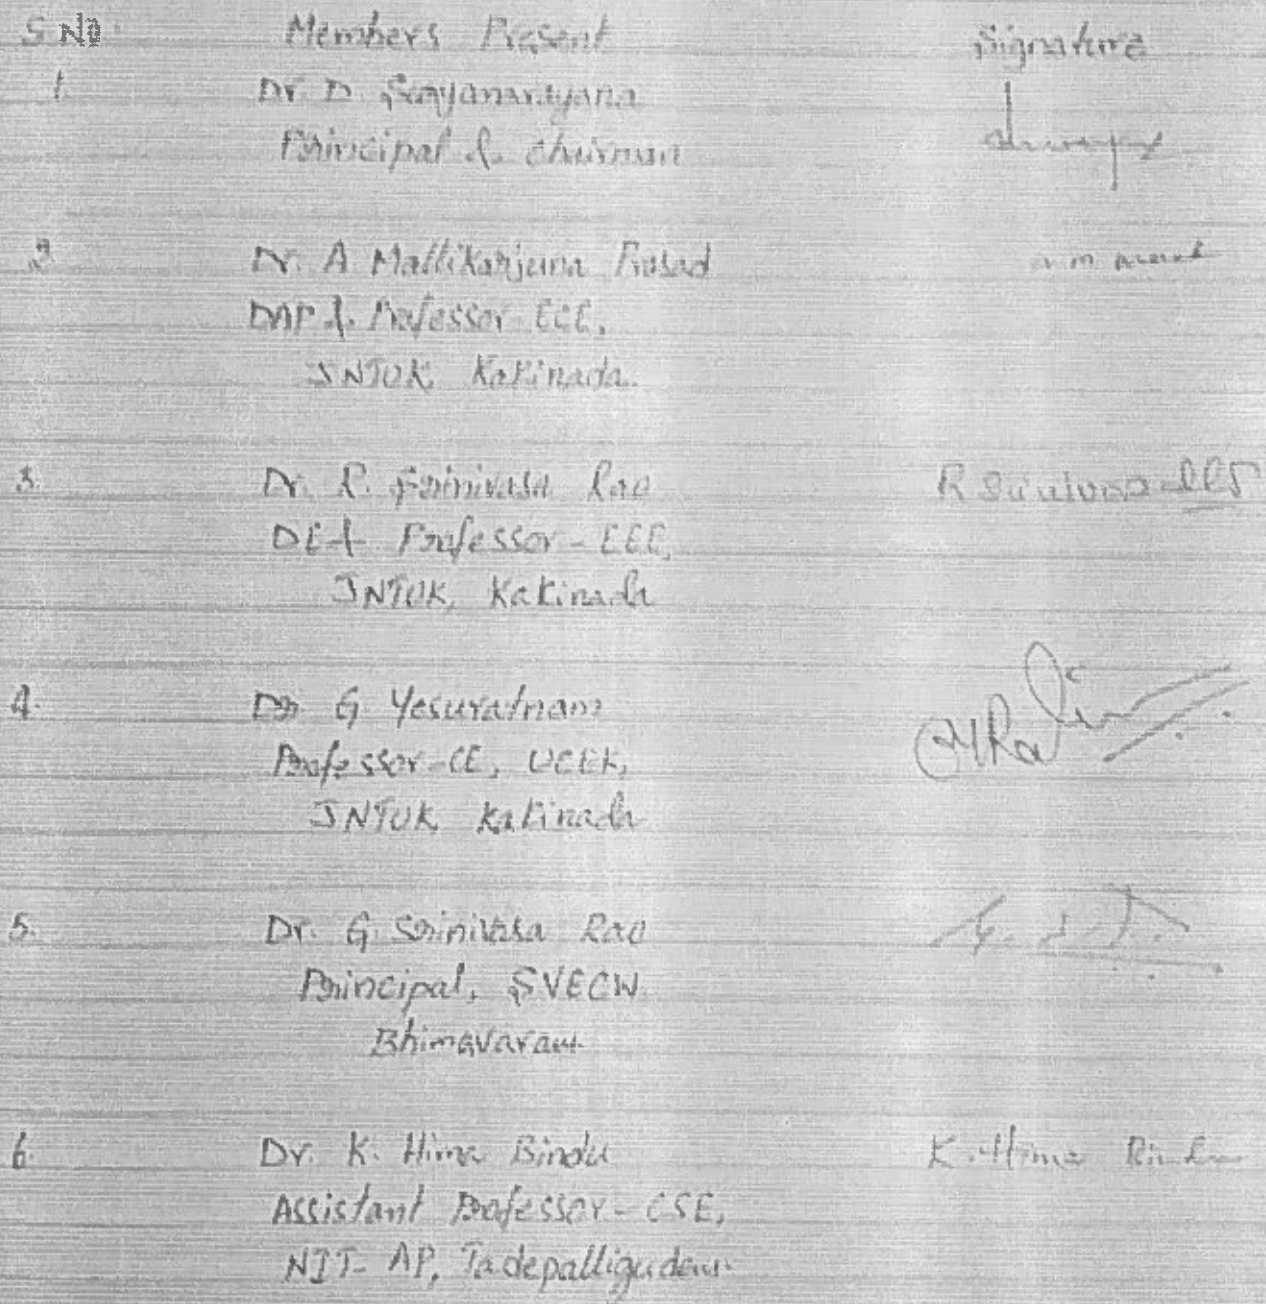 S.No Members Present Signature
1. Dr. D. Suryanarayana
Principal & Chairman
2. Dr. A Mallikarjuna Prasad A M Prasad
DAP & Professor-ECE,
JNTUK, Kakinada.
3. Dr. R. Srinivasa Rao R Srinivasa
DE & Professor-EEE,
JNTUK, Kakinada
4. Dr G. Yesuratnam
Professor-CE, UCEK,
JNTUK, Kakinada
5. Dr. G. Srinivasa Rao
Principal, SVECW
Bhimavaram
6. Dr. K. Hima Bindu K. Hima Bindu
Assistant Professor-CSE,
NIT-AP, Tadepalligudem